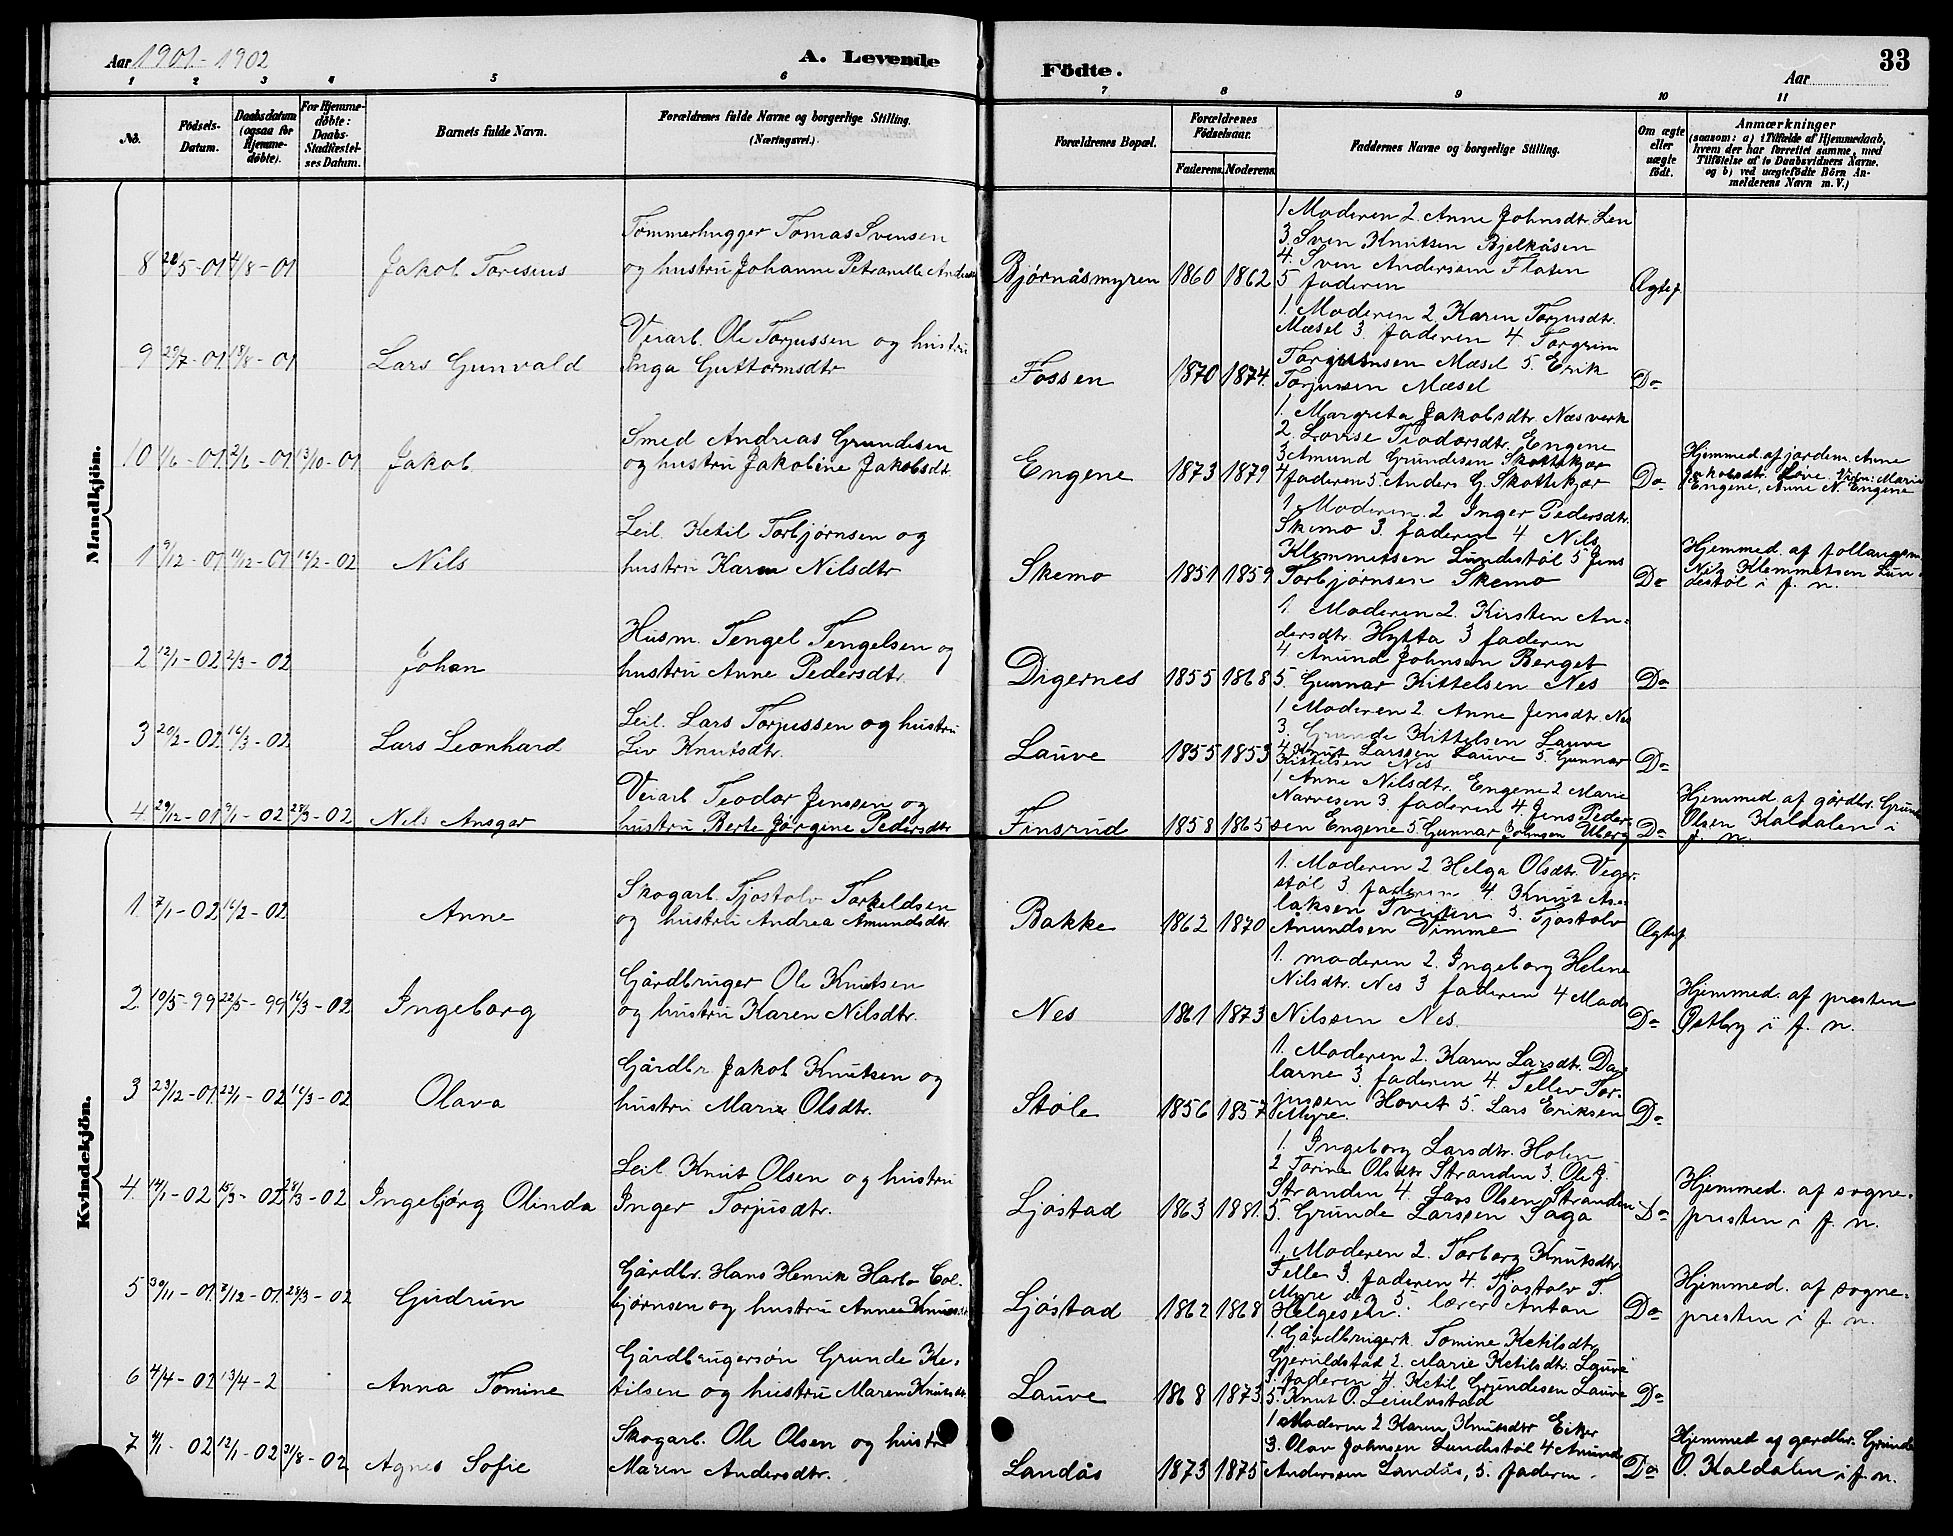 Aar 1901-1902
A. Levende
Födte.
Aar
33
1 2 3 4 5 6 7 8 9 10 11
No.
Födsels-Datum.
Daabsdatum (ogsaa for Hjemme-döbte).
For Hjemme-döbte: Daabs-Stadfæstel-ses Datum.
Barnets fulde Navn.
Forældrenes fulde Navne og borgerlige Stilling. (Næringsvei.)
Forældrenes Bopæl.
Forældrenes Födselsaar.
Faderens. Moderens.
Faddernes Navne og borgerlige Stilling.
Om ægte eller uægte født.
Anmærkninger
(saasom: a) i Tilfælde af Hjemmedaab,
hvem der har forrettet samme, med
Tilföielse af to Daabsvidners Navne.
og b) ved uægtefödte Börn An-
melderens Navn m. V.)
Mandkjön.
8 28/5-01 4/8-01 Jakob Toresius
Tømmerhugger Tomas Svensen
og hustru Johanne Petranille Anders
Bjørnåsmyren 1860 1862
1 Moderen 2. Anne Johnsdtr. Len
3. Sven Knutsen Bjelkåsen
4. Sven Andersen Flaten
5 faderen
Ægtef
9 29/7-01 18/8-01 Lars Gunvald
Veiarb. Ole Torjussen og hustru
Inga Guttormsdtr
Fossen 1870 1874.
1. Moderen 2 Karen Torjusdtr.
Mæsel 3. faderen 4 Torgrim
Torjussen Mæsel 5. Erik
Torjussen Mæsel
Do
10 1/6-01 2/6-01 13/10-01 Jakob
Smed Andreas Grundesen
og hustru Jakobine Jakobsdt.
Engene 1873 1879
1. Margreta Jakobsdtr. Næsverk
2. Lovise Teodorsdtr. Engene
3 Amund Grundesen Skottekjær
4 faderen 5. Anders G. Skottekjær
Do
Hjemmed. af jordem. Anne
Jakobsdtr. Løve. Vidn: Marie
Engene, Anne N. Engene
1 9/12-01 11/12-01 16/2-02 Nils
Leil. Ketil Torbjørnsen og
hustru Karen Nilsdtr
Skemo 1851 1859
1 Moderen. 2 Inger Pedersdtr.
Skemo 3. faderen 4 Nils
Klemmetsen Lundestøl 5 Jens
Torbjørnsen Skemo
Do
Hjemmed. af forlangem
Nils Klemmetsen Lun-
destøl i f. n.
2 12/1-02 2/3-02 Johan
Husm. Tengel Tengelsen og
hustru Anne Pedersdtr.
Digernes 1855 1868
1. Moderen 2. Kirsten An-
dersdtr. Hytta 3 faderen
4 Anund Johnsen Berget
5. Gunnar Kittelsen Nes
Do
3 20/2-02 16/3-02 Lars Leonhard
Leil. Lars Torjussen og hustru
Liv Knutsdtr.
Lauve 1855 1853
1 Moderen 2 Anne Jensdtr. Nes
3. Grunde Kittelsen Lauve
4 Knut Larssen Lauve 5. Gunnar
Kittelsen Nes
Do
4 29/12-01 9/1-02 23/3-02 Nils Ansgar
Veiarb. Teodor Jenssen og
hustru Berte Jørgine Pedersdtr
Finsrud 1858 1865
1 Anne Nilsdtr. Engene 2 Marie
Narvesen 3. faderen 4. Jens Peder-
sen Engene 5. Gunnar Johnsen Uberg
Do
Hjemmed. af gårdbr. Grunde
Olsen Kaldalen i
f. n.
Kvindekjön.
1. 7/1-02 16/2-02 Anne
Skogarb. Tjøstolv Torkeldsen
og hustru Andrea Amundsdtr
Bakke 1862 1870
1. Moderen 2 Helga Olsdtr. Veger-
støl 3. faderen 4 Knut As-
laksen Tveiten 5. Tjøstolv
Anundsen Vimme
Ægtef
2 10/5-99 22/5-99 16/3-02 Ingeborg
Gårdbruger Ole Knutsen
og hustru Karen Nilsdtr.
Nes 1861 1873
1. moderen 2. Ingeborg Helene
Nilsdtr. Nes 3 faderen 4 Mads
Nilssen Nes.
Do
Hjemmed. af presten
Østby i f. n.
3 23/12-01. 22/1-02 16/3-02 Olava
Gårdbr. Jakob Knutsen og
hustru Marie Olsdtr.
Støle 1856 1857
1. Moderen 2. Karen Larsdtr. Da-
larne 3. faderen 4. Tellev Tor-
jussen Hovet 5. Lars Eriksen
Myre.
Do
4. 14/1-02 15/3-02 23/3-02 Ingebjørg Olinda
Leil. Knut Olsen og hustru
Inger Torjusdtr.
Ljøstad 1863 1881.
1. Ingeborg Larsdtr. Holen
2 Torine Olsdtr Stranden 3. Ole G.
Stranden 4. Lars Olsen Stranden
5. Grunde Larssen Saga
Do
Hjemmed. af sogne-
presten i f. n.
5 30/11-01. 7/12-01. 23/3-02 Gudrun
Gårdbr. Hans Henrik Harbo Col-
bjørnsen og hustru Anne Knutsdt
Ljøstad 1862 1868
1. Moderen 2. Torborg Knutsdtr.
Felle 3. faderen 4. Tjøstolv T.
Myre 5. lærer Anton
Helgesen.
Do
Hjemmed. af sogne-
presten i f. n.
6 4/4-02 13/4-2 Anna Tomine
Gårdbrugersøn Grunde Ke-
tilsen og hustru Maren Knutsdt.
Lauve 1868 1873
1. Gårdbrugerk. Tomine Ketilsdtr
Gjeruldstad 2. Marie Ketilsdtr. Lauve
3. faderen 4. Ketil Grundesen Lauve
5. Knut O. Leiulvstad
Do
7 4/1-02 12/1-02 31/8-02 Agnes Sofie
Skogarb. Ole Olsen og hustru
Maren Andersdtr.
Landås 1873 1875
1 Moderen 2 Karen Knutsdtr Eiker
3. Olav Johnsen Lundestøl 4 Anund
Anderssen Landås, 5. faderen.
Do
Hjemmed af gardbr. Grunde
O. Kaldalen i f. n.